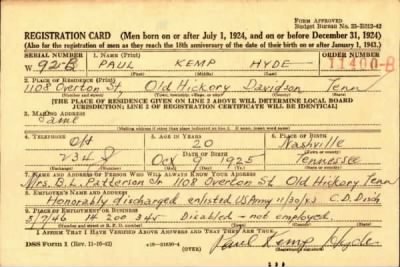 FORM APPROVED
Budget Bureau No. 33-R012-42
REGISTRATION CARD (Men born on or after July 1, 1924, and on or before December 31, 1924)
(Also for the registration of men as they reach the 18th anniversary of the date of their birth on or after January 1, 1943.)
SERIAL NUMBER 1. NAME (Print) ORDER NUMBER
W 92-B PAUL KEMP HYDE 11400-B
(First) (Middle) (Last)
2. PLACE OF RESIDENCE (Print)
1108 Overton St, Old Hickory Davidson Tenn
[THE PLACE OF RESIDENCE GIVEN ON LINE 2 ABOVE WILL DETERMINE LOCAL BOARD
JURISDICTION; LINE 2 OF REGISTRATION CERTIFICATE WILL BE IDENTICAL]
3. MAILING ADDRESS
Same
[Mailing address if other than place indicated on line 2. If same, insert word same]
4. TELEPHONE 5. AGE IN YEARS 6. PLACE OF BIRTH
OH 20 Nashville
DATE OF BIRTH
234 Oct 9 1925 Tennessee
7. NAME AND ADDRESS OF PERSON WHO WILL ALWAYS KNOW YOUR ADDRESS
Mrs. B.L. Patterson Jr 1108 Overton St. Old Hickory Tenn
8. EMPLOYER'S NAME AND ADDRESS
Honorably discharged enlisted US Army 11/30/43 C.D. Disch
9. PLACE OF EMPLOYMENT OR BUSINESS
3/7/46 14 200 345 Disabled - not employed.
I AFFIRM THAT I HAVE VERIFIED ABOVE ANSWERS AND THAT THEY ARE TRUE.
DSS Form 1 (OVER) Paul Kemp Hyde